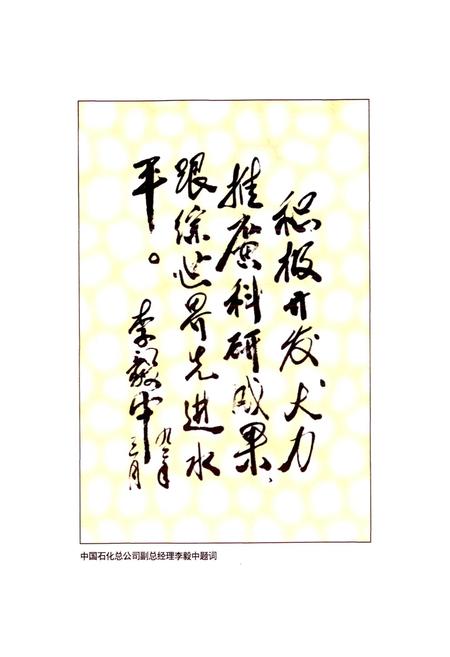 积极开发大力
推廣科研成果、
跟综世界先进水
平。
李毅中
九二年
三月
中国石化总公司副总经理李毅中题词